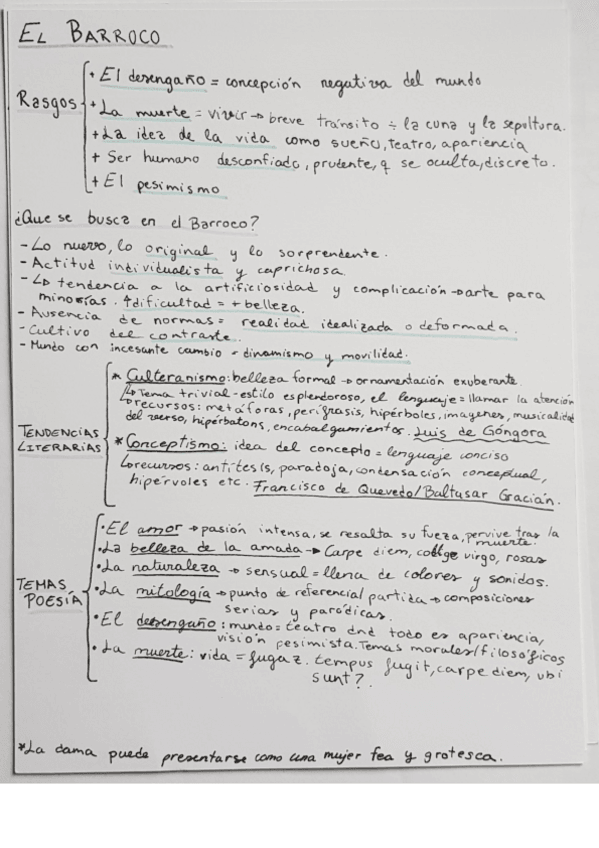 EL BARROCO
Rasgos
+ El desengaño = concepción negativa del mundo
+ La muerte = vivir → breve tránsito ÷ la cuna y la sepoltura.
+ La idea de la vida como sueño, teatro, apariencia
+ Ser humano desconfiado, prudente, q se oculta, discreto.
+ El pesimismo
¿Que se busca en el Barroco?
- Lo nuevo, lo original y lo sorprendente.
- Actitud individualista y caprichosa.
- ↳ tendencia a la artificiosidad y complicación → arte para
minorías. ↑dificultad = + belleza.
- Ausencia de normas = realidad idealizada o deformada.
- Cultivo del contraste.
- Mundo con incesante cambio = dinamismo y movilidad.
TENDENCIAS
LITERARIAS
* Culteranismo: belleza formal → ornamentación exuberante.
↳ Tema trivial - estilo esplendoroso, el lenguaje = llamar la atención
↳ recursos: metáforas, perífrasis, hipérboles, imágenes, musicalidad
del verso, hipérbatons, encabalgamientos. Luis de Góngora
* Conceptismo: idea del concepto = lenguaje conciso
↳ recursos: antítesis, paradoja, condensación conceptual,
hipérvoles etc. Francisco de Quevedo/Baltasar Gracián.
TEMAS
POESÍA
· El amor → pasión intensa, se resalta su fuerza, pervive tras la
muerte.
· La belleza de la amada → Carpe diem, collige virgo, rosas
· La naturaleza → sensual = llena de colores y sonidos.
· La mitología → punto de referencial partida → composiciones
serias y paródicas.
· El desengaño: mundo = teatro dnd todo es apariencia,
visión pesimista. Temas morales/filosóficos
· La muerte: vida = fugaz. tempus fugit, carpe diem, ubi
sunt?
*La dama puede presentarse como una mujer fea y grotesca.